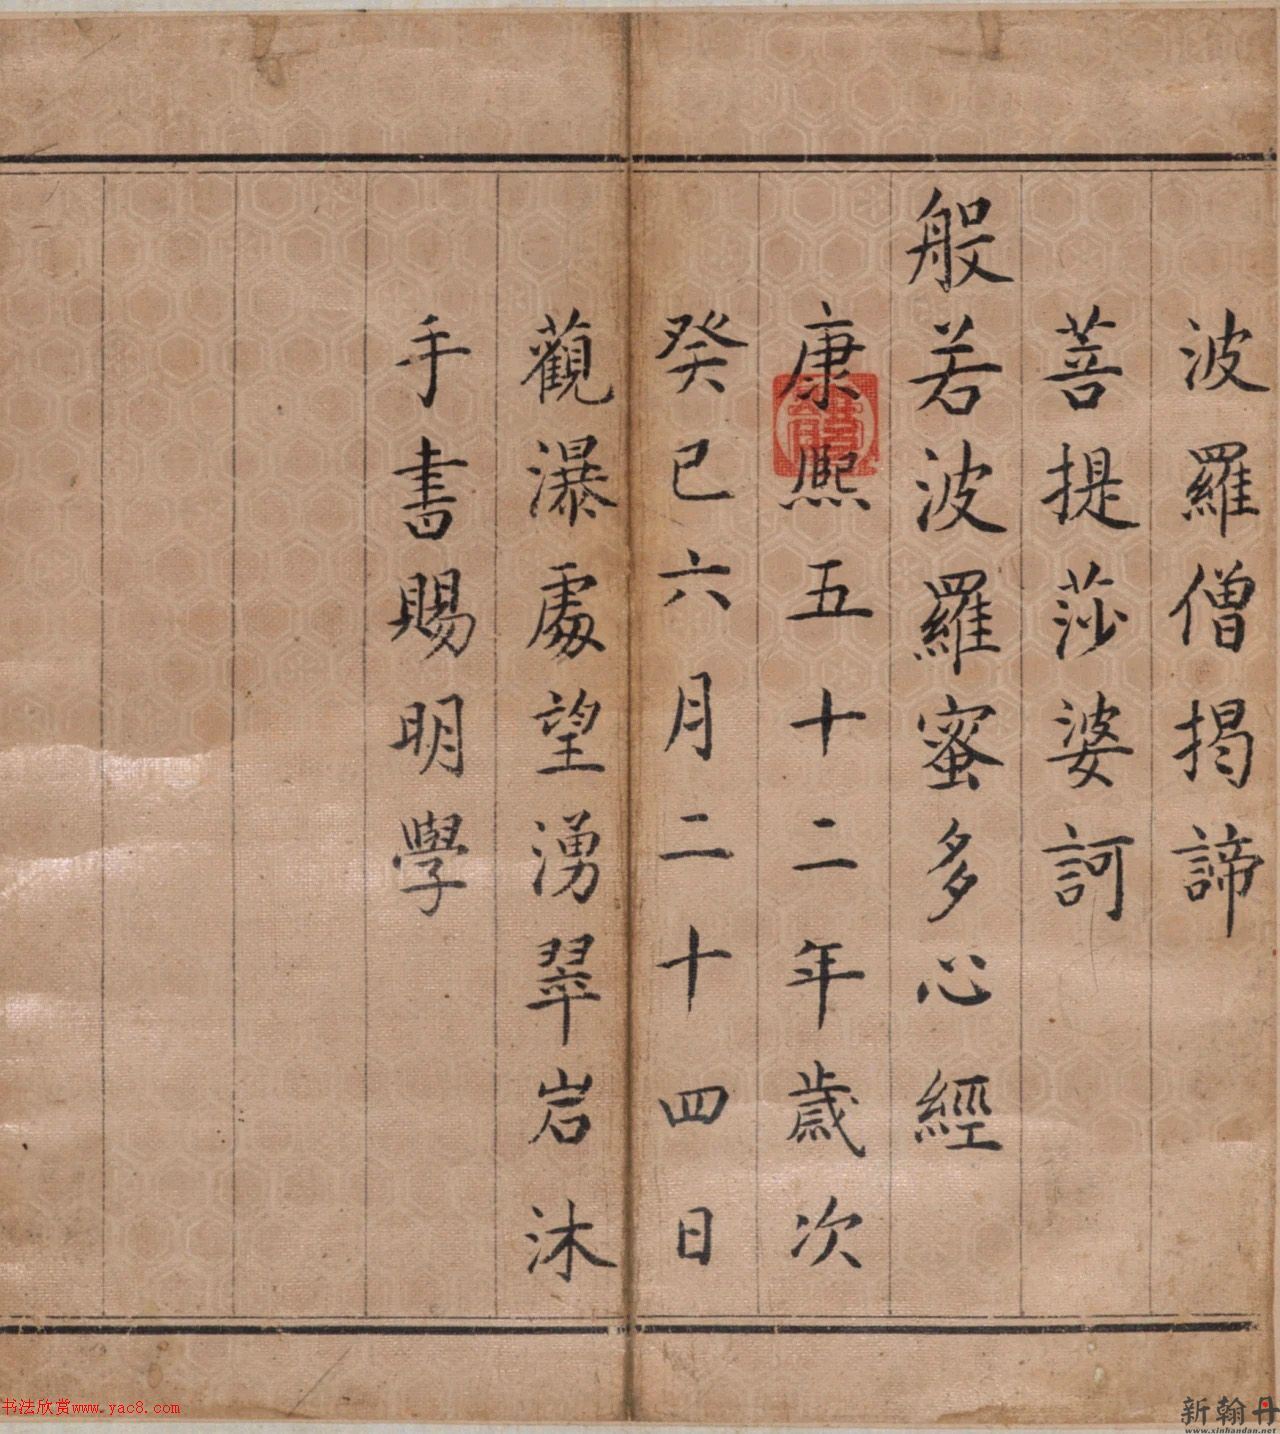 波羅僧揭諦
菩提莎婆訶
般若波羅蜜多心經
康熙五十二年歲次
癸巳六月二十四日
觀瀑處望湧翠岩沐
手書賜明學
书法欣赏www.yac8.com
新翰丹
www.xinhandan.net